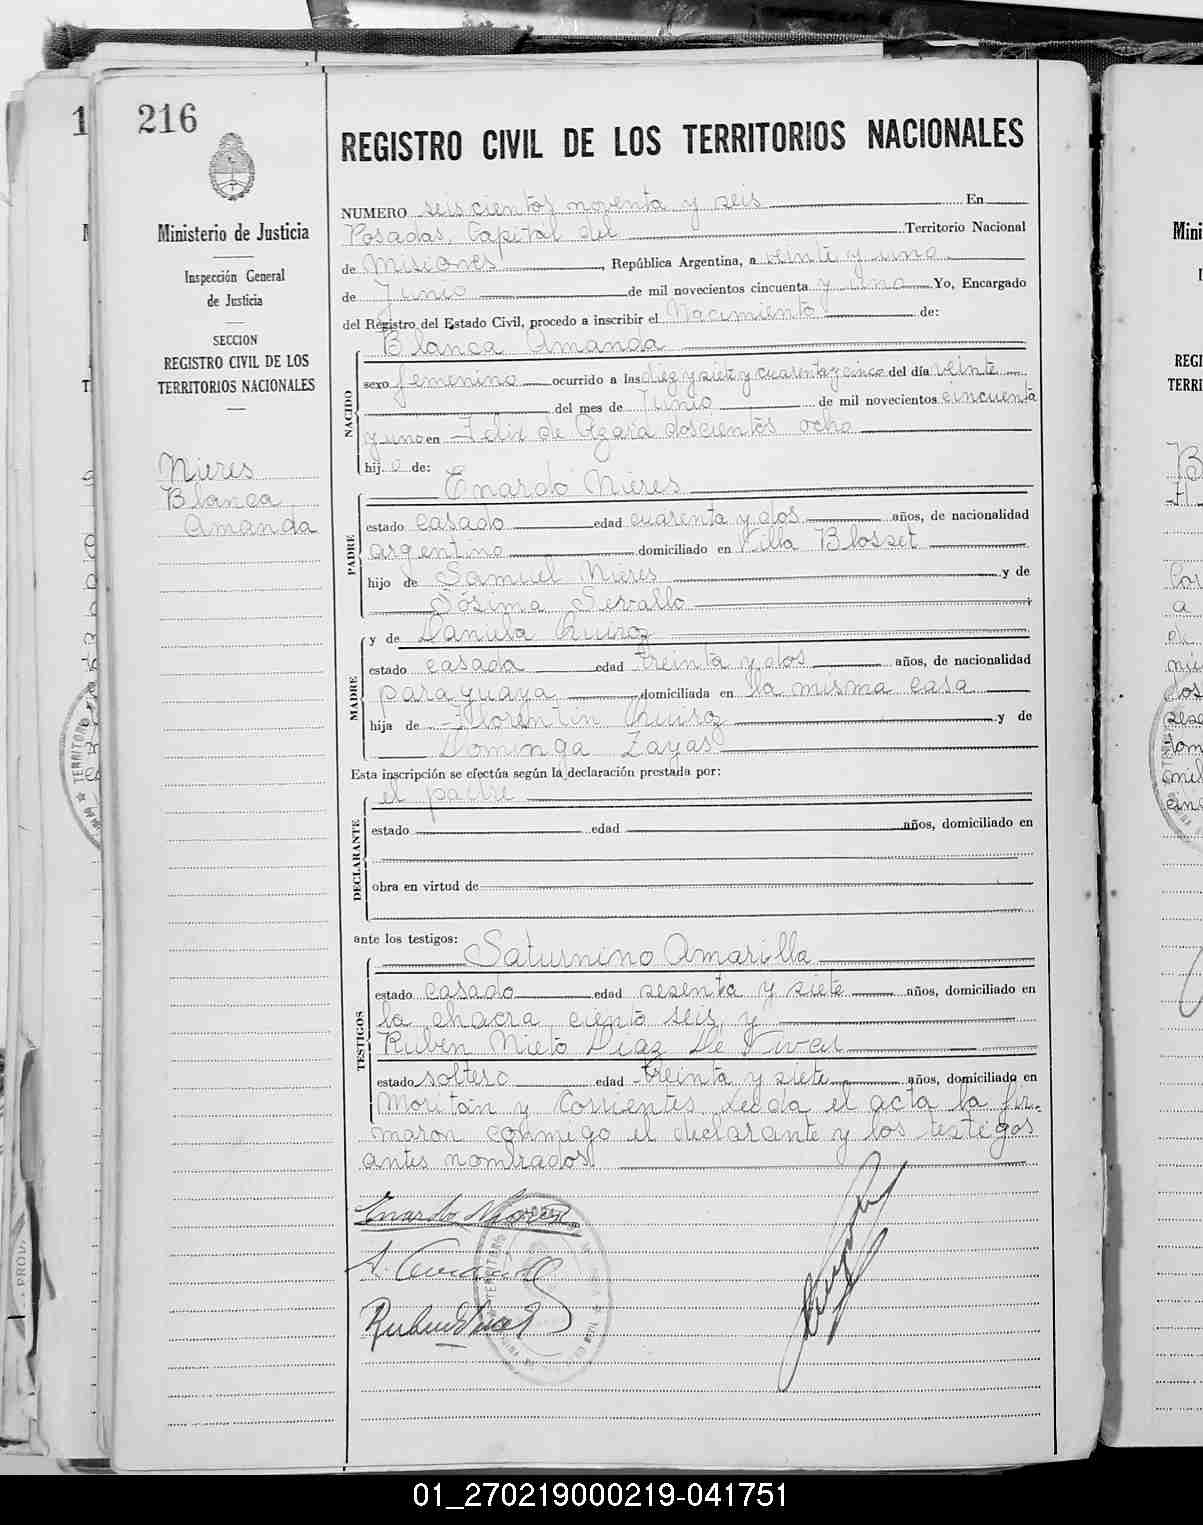 216
REGISTRO CIVIL DE LOS TERRITORIOS NACIONALES
Ministerio de Justicia
Inspección General
de Justicia
SECCION
REGISTRO CIVIL DE LOS
TERRITORIOS NACIONALES
Nieres
Blanca
Amanda
NUMERO seiscientos noventa y seis En
Posadas, Capital del Territorio Nacional
de Misiones, República Argentina, a veinte y uno
de Junio de mil novecientos cincuenta y uno Yo, Encargado
del Registro del Estado Civil, procedo a inscribir el Nacimiento de:
NACIDO
Blanca Amanda
sexo femenino ocurrido a las diez y siete y cuarenta y cinco del día veinte
del mes de Junio de mil novecientos cincuenta
y uno en Felix de Azara doscientos ocho
hij a de:
PADRE
Enardo Nieres
estado casado edad cuarenta y dos años, de nacionalidad
argentino domiciliado en Villa Blosset
hijo de Samuel Nieres y de
Sósima Servallo
MADRE
y de Ruiz
estado casada edad treinta y dos años, de nacionalidad
paraguaya domiciliada en la misma casa
hija de Florentin Ruiz y de
Dominga Zayas
Esta inscripción se efectúa según la declaración prestada por:
DECLARANTE
el padre
estado edad años, domiciliado en
obra en virtud de
ante los testigos:
TESTIGOS
Saturnino Amarilla
estado casado edad sesenta y siete años, domiciliado en
la chacra ciento seis y
Rubén Nieto Diaz De Vivar
estado soltero edad treinta y siete años, domiciliado en
Moritán y Corrientes. Leída el acta la fir-
maron conmigo el declarante y los testigos
antes nombrados.
01_270219000219-041751